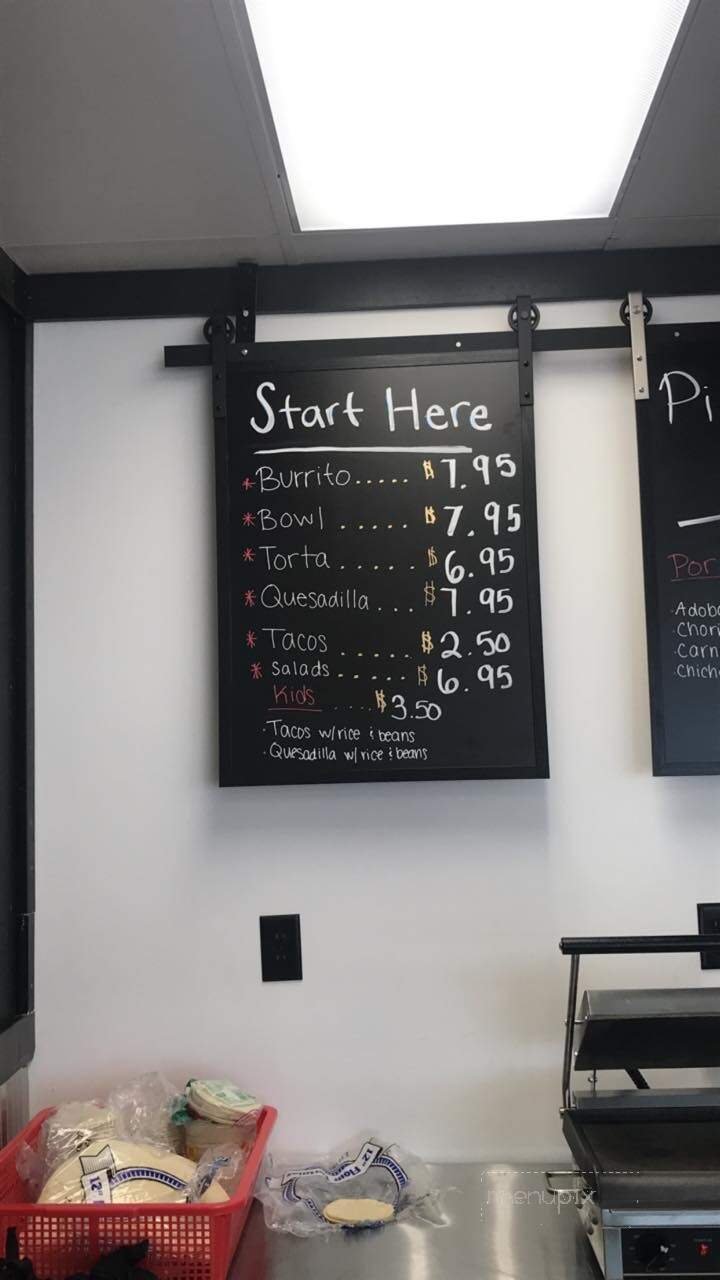 Start Here
*Burrito..... $7.95
*Bowl ..... $7.95
*Torta ...... $6.95
*Quesadilla... $7.95
*Tacos ..... $2.50
*Salads..... $6.95
Kids ..... $3.50
·Tacos w/rice & beans
·Quesadilla w/rice & beans
Pi
Por
·Adobo
·Chori
·Carn
·Chich
12"
12" Flour
menupix